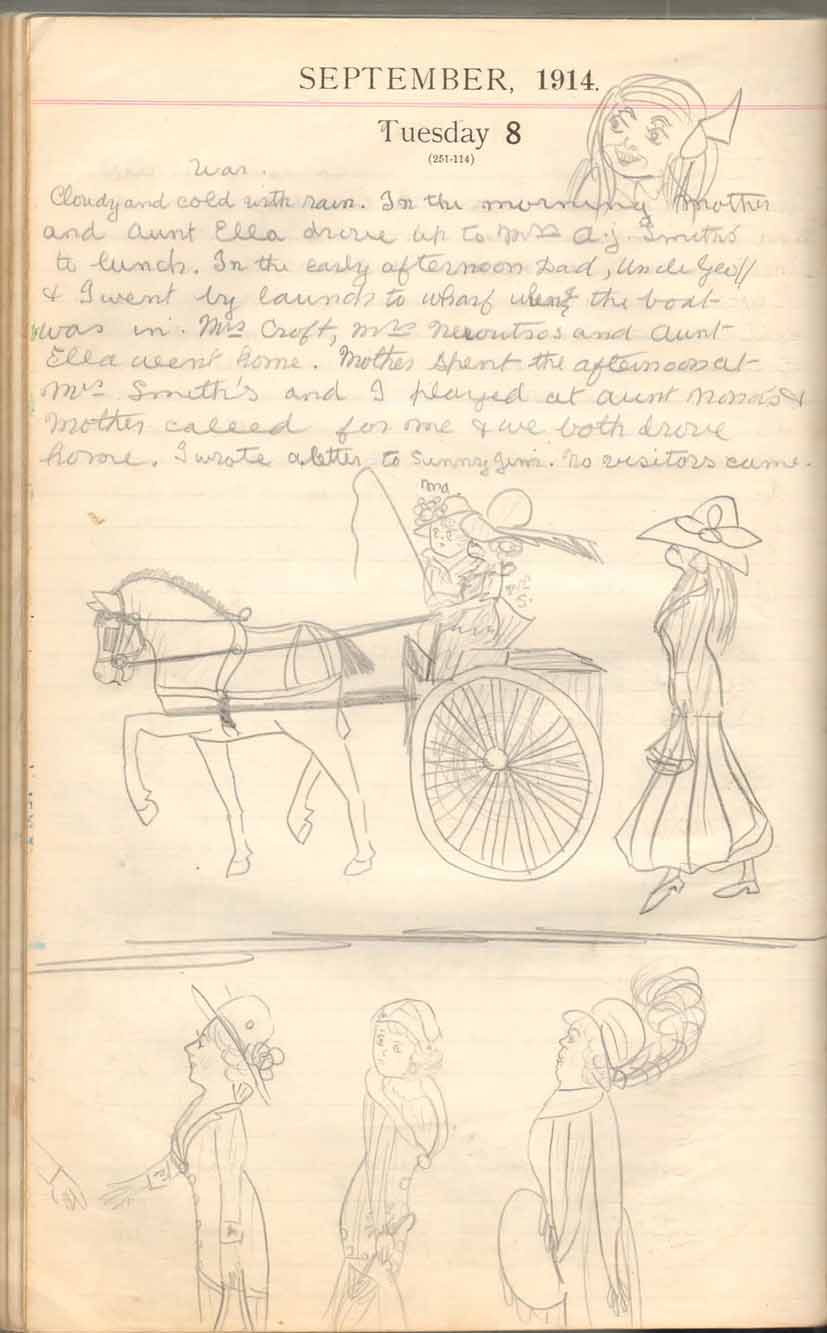 SEPTEMBER, 1914.
Tuesday 8
(251-114)
War.
Cloudy and cold with rain. In the morning Mother
and Aunt Ella drove up to Mrs A.J. Smith's
to lunch. In the early afternoon Dad, Uncle Geoff
& I went by launch to wharf the boat
was in. Mrs Croft, Mrs and Aunt
Ella went home. Mother spent the afternoon at
Mrs Smith's and I played at Aunt Nona's &
Mother called for me & we both drove
home. I wrote a letter to Sunny Jim. No visitors came.
Mrs
S.